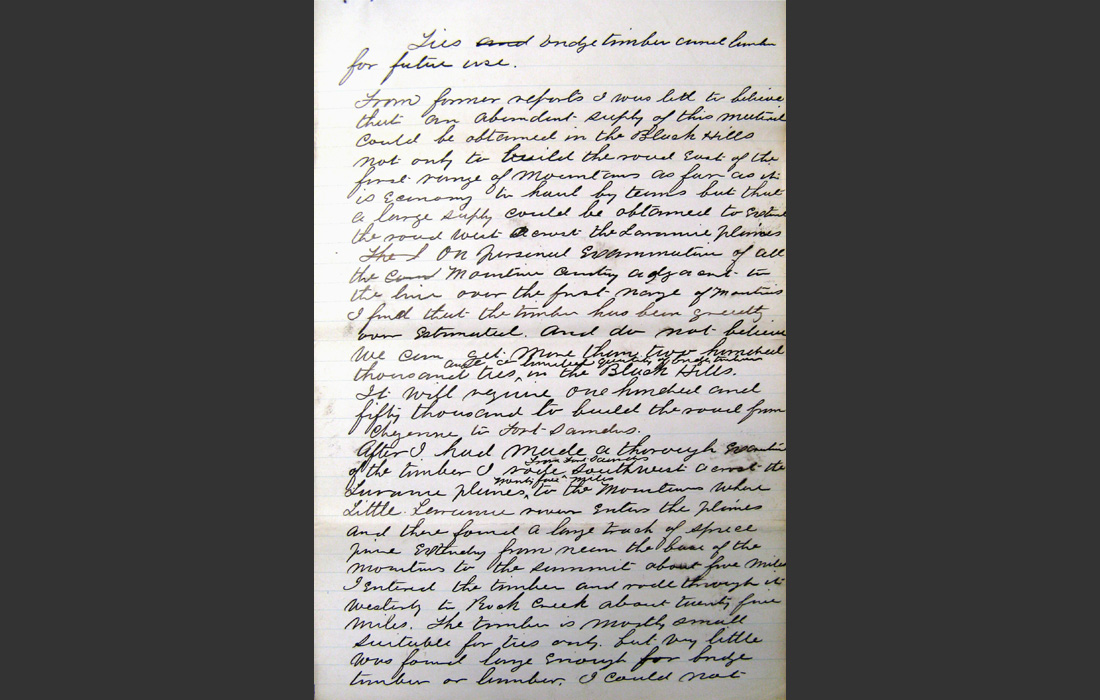 Ties and bridge timber and lumber
for future use.
From former reports I was led to believe
that an abundant suply of this material
could be obtained in the Black Hills
not only to build the road East of the
first range of Mountains as far as it
is Economy to haul by teams but that
a large suply could be obtained to Extend
the road west acrost the Laramie plaines
The I On personal Examination of all
the Mountine Cuntry adjacent to
the line over the first range of Mountins
I find that the timber has been greatly
over Estimated. And do not believe
we can get more than two hundred
and a limited quantity of bridge timber
thousand ties in the Black Hills.
It will require one hundred and
fifty thousand to build the road from
Cheyenne to Fort Sanders.
After I had made a thorough
of the timber I rode southwest acrost the
From Fort Sanders
Laramie plaines to the Mountains where
twenty five miles
Little Laramie river Enters the plaines
and there found a large track of spruce
pine Extending from near the base of the
mountins to the summit about five miles
I Entered the timber and rode through it
westerly to Rock Creek about twenty five
miles. The timber is mostly small
suitable for ties only. but very little
was found large Enough for bridge
timber or lumber. I could not